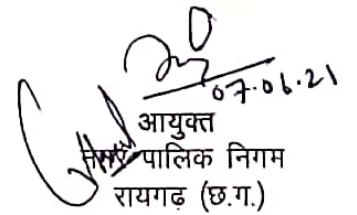 07.06.21
आयुक्त
नगर पालिक निगम
रायगढ़ (छ.ग.)